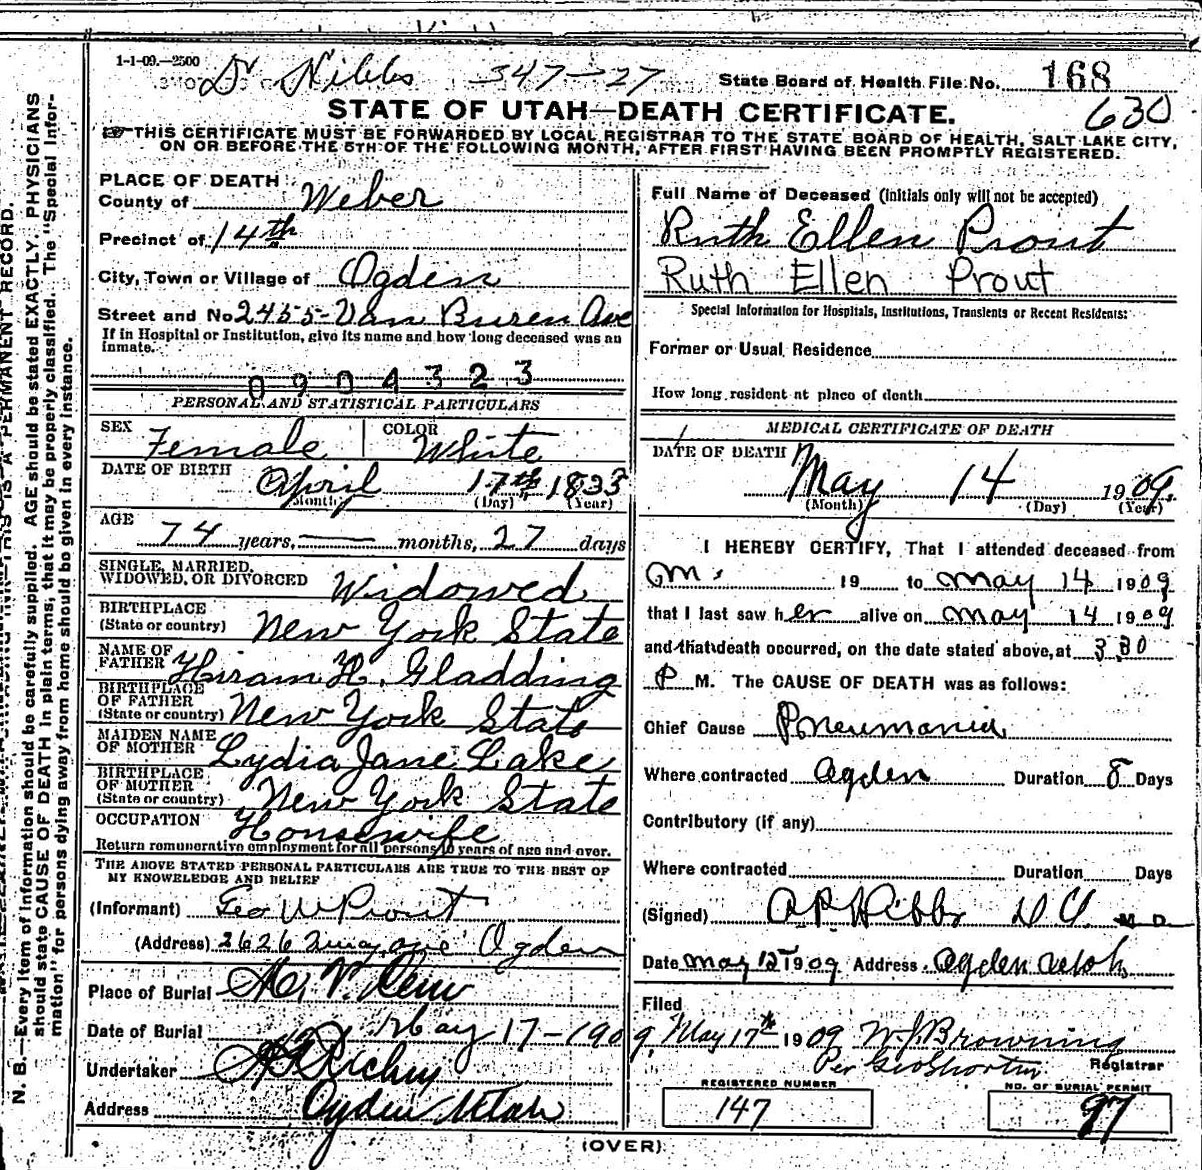 1-1-09.—2500
Dr Nibbs 347-27
State Board of Health File No. 168
630
STATE OF UTAH—DEATH CERTIFICATE.
THIS CERTIFICATE MUST BE FORWARDED BY LOCAL REGISTRAR TO THE STATE BOARD OF HEALTH, SALT LAKE CITY,
ON OR BEFORE THE 5TH OF THE FOLLOWING MONTH, AFTER FIRST HAVING BEEN PROMPTLY REGISTERED.
PLACE OF DEATH
County of Weber
Precinct of 14th
City, Town or Village of Ogden
Street and No 2455 Van Buren Ave
If in Hospital or Institution, give its name and how long deceased was an
inmate.
0904323
PERSONAL AND STATISTICAL PARTICULARS
SEX Female COLOR White
DATE OF BIRTH April 17th 1833
(Month) (Day) (Year)
AGE 74 years, — months, 27 days
SINGLE, MARRIED,
WIDOWED, OR DIVORCED Widowed
BIRTHPLACE
(State or country) New York State
NAME OF
FATHER Hiram H. Gladding
BIRTHPLACE
OF FATHER
(State or country) New York State
MAIDEN NAME
OF MOTHER Lydia Jane Lake
BIRTHPLACE
OF MOTHER
(State or country) New York State
OCCUPATION Housewife
Return remunerative employment for all persons 10 years of age and over.
THE ABOVE STATED PERSONAL PARTICULARS ARE TRUE TO THE BEST OF
MY KNOWLEDGE AND BELIEF
(Informant) Geo W Prout
(Address) 2626 ave Ogden
Place of Burial
Date of Burial May 17-1909
Undertaker Richey
Address Ogden Utah
Full Name of Deceased (initials only will not be accepted)
Ruth Ellen Prout
Ruth Ellen Prout
Special Information for Hospitals, Institutions, Transients or Recent Residents:
Former or Usual Residence
How long resident at place of death
MEDICAL CERTIFICATE OF DEATH
DATE OF DEATH
May 14 1909.
(Month) (Day) (Year)
I HEREBY CERTIFY, That I attended deceased from
19 to May 14 1909
that I last saw her alive on May 14 1909
and that death occurred, on the date stated above, at 3.30
P M. The CAUSE OF DEATH was as follows:
Chief Cause Pneumania
Where contracted Ogden Duration 8 Days
Contributory (if any)
Where contracted Duration Days
(Signed) A P Hibbs M. D.
Date May 15 1909 Address Ogden Utah
Filed
May 17th 1909 W. J. Browning
Per Geo Shorten Registrar
REGISTERED NUMBER
147
NO. OF BURIAL PERMIT
97
(OVER)
N. B.—Every item of information should be carefully supplied. AGE should be stated EXACTLY. PHYSICIANS
should state CAUSE OF DEATH in plain terms, that it may be properly classified. The "Special Infor-
mation" for persons dying away from home should be given in every instance.